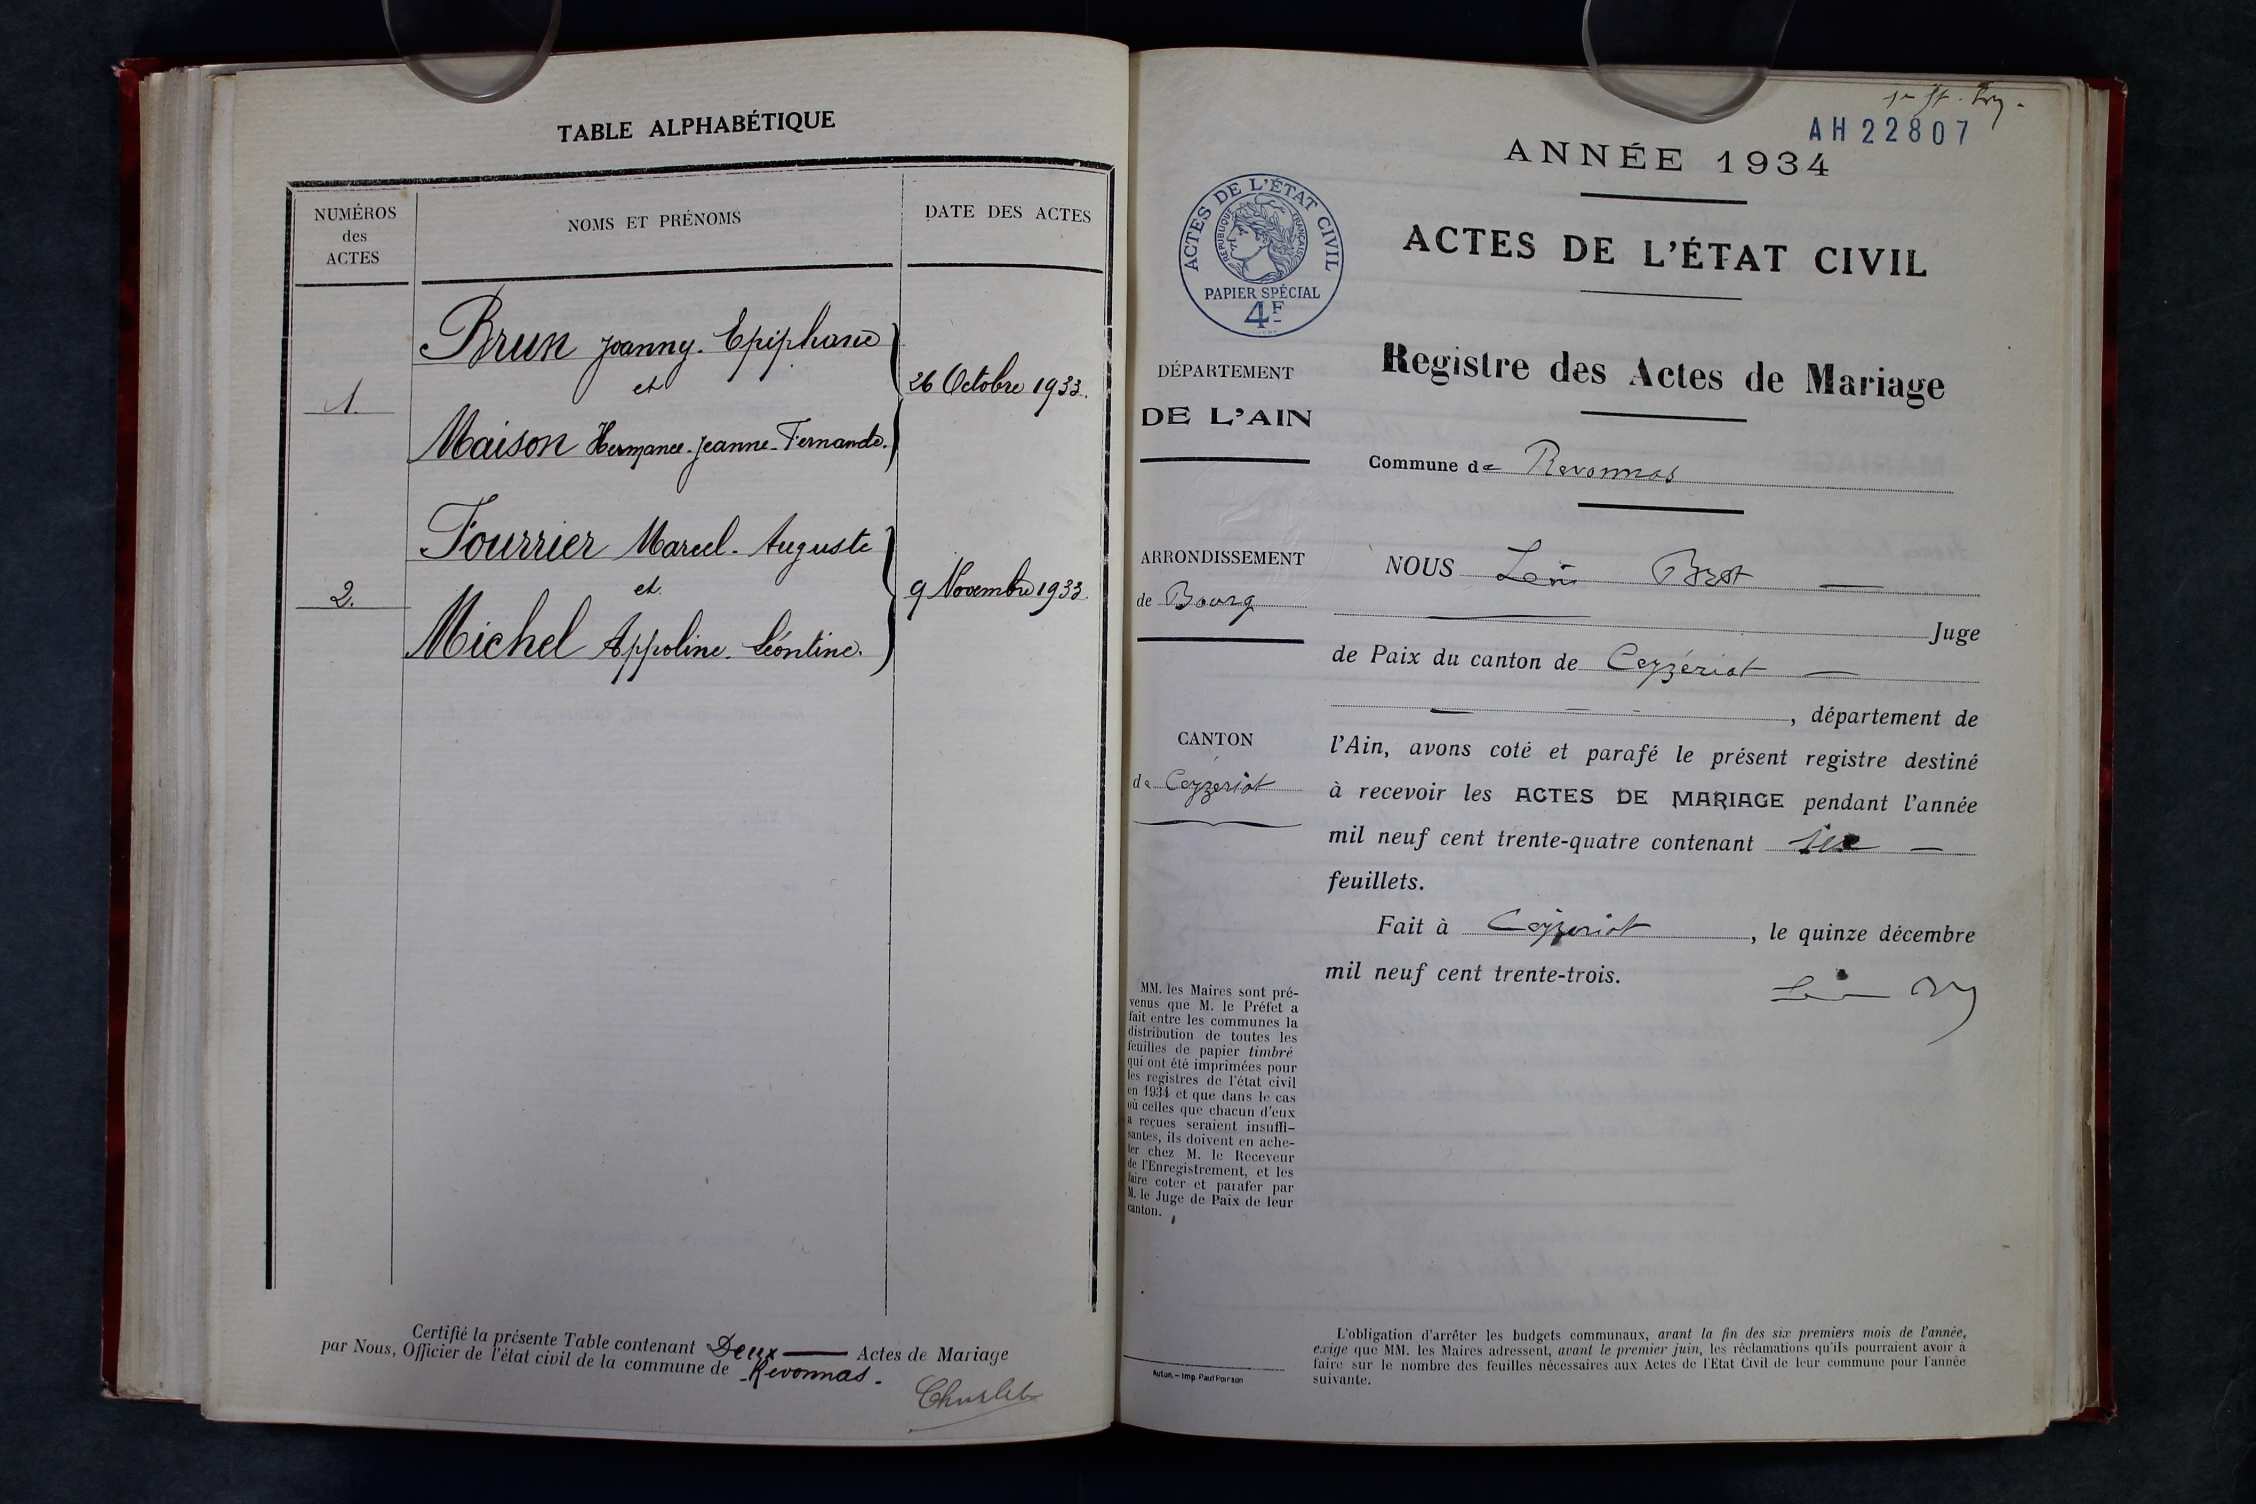 TABLE ALPHABÉTIQUE
NUMÉROS
des
ACTES
NOMS ET PRÉNOMS
DATE DES ACTES
Brun Joanny. Epiphanie
et
1.
26 Octobre 1933.
Maison Hermance. Jeanne. Fernande.
Fourrier Marcel. Auguste
et
2.
9 Novembre 1933.
Michel Appoline. Léontine.
Certifié la présente Table contenant Deux Actes de Mariage
par Nous, Officier de l'état civil de la commune de Revonnas.
AH 22807
ANNÉE 1934
ACTES DE L'ÉTAT CIVIL
RÉPUBLIQUE FRANÇAISE
PAPIER SPÉCIAL
4F
ACTES DE L'ÉTAT CIVIL
Registre des Actes de Mariage
DÉPARTEMENT
DE L'AIN
Commune de Revonnas
ARRONDISSEMENT
de Bourg
CANTON
de Ceyzériat
NOUS
Juge
de Paix du canton de Ceyzériat
, département de
l'Ain, avons coté et parafé le présent registre destiné
à recevoir les ACTES DE MARIAGE pendant l'année
mil neuf cent trente-quatre contenant six
feuillets.
Fait à Ceyzériat, le quinze décembre
mil neuf cent trente-trois.
MM. les Maires sont pré-
venus que M. le Préfet a
fait entre les communes la
distribution de toutes les
feuilles de papier timbré
qui ont été imprimées pour
les registres de l'état civil
en 1934 et que dans le cas
où celles que chacun d'eux
a reçues seraient insuffi-
santes, ils doivent en ache-
ter chez M. le Receveur
de l'Enregistrement, et les
faire coter et parafer par
M. le Juge de Paix de leur
canton.
Autun. — Imp. Paul Poirson
L'obligation d'arrêter les budgets communaux, avant la fin des six premiers mois de l'année,
exige que MM. les Maires adressent, avant le premier juin, les réclamations qu'ils pourraient avoir à
faire sur le nombre des feuilles nécessaires aux Actes de l'Etat Civil de leur commune pour l'année
suivante.